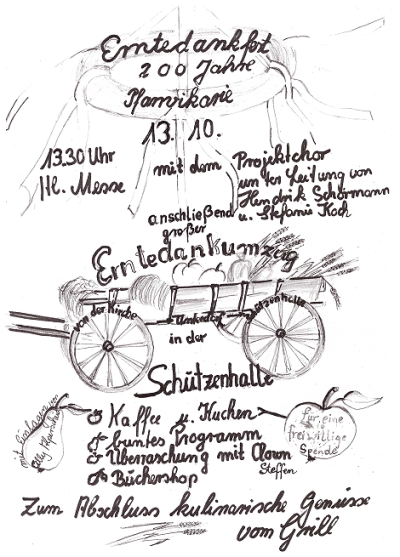 Erntedankfest
200 Jahre
Pfarrvikarie
13.10.
13.30 Uhr
Hl. Messe
mit dem Projektchor
unter Leitung von
Hendrik Schörmann
u. Stefanie Koch
anschließend
großer
Erntedankumzug
von der Kirche
in der
Schützenhalle
Kaffee u. Kuchen
buntes Programm
Überraschung mit Clown
Steffen
Büchershop
Für eine
freiwillige
Spende
Zum Abschluss kulinarische Genüsse
vom Grill